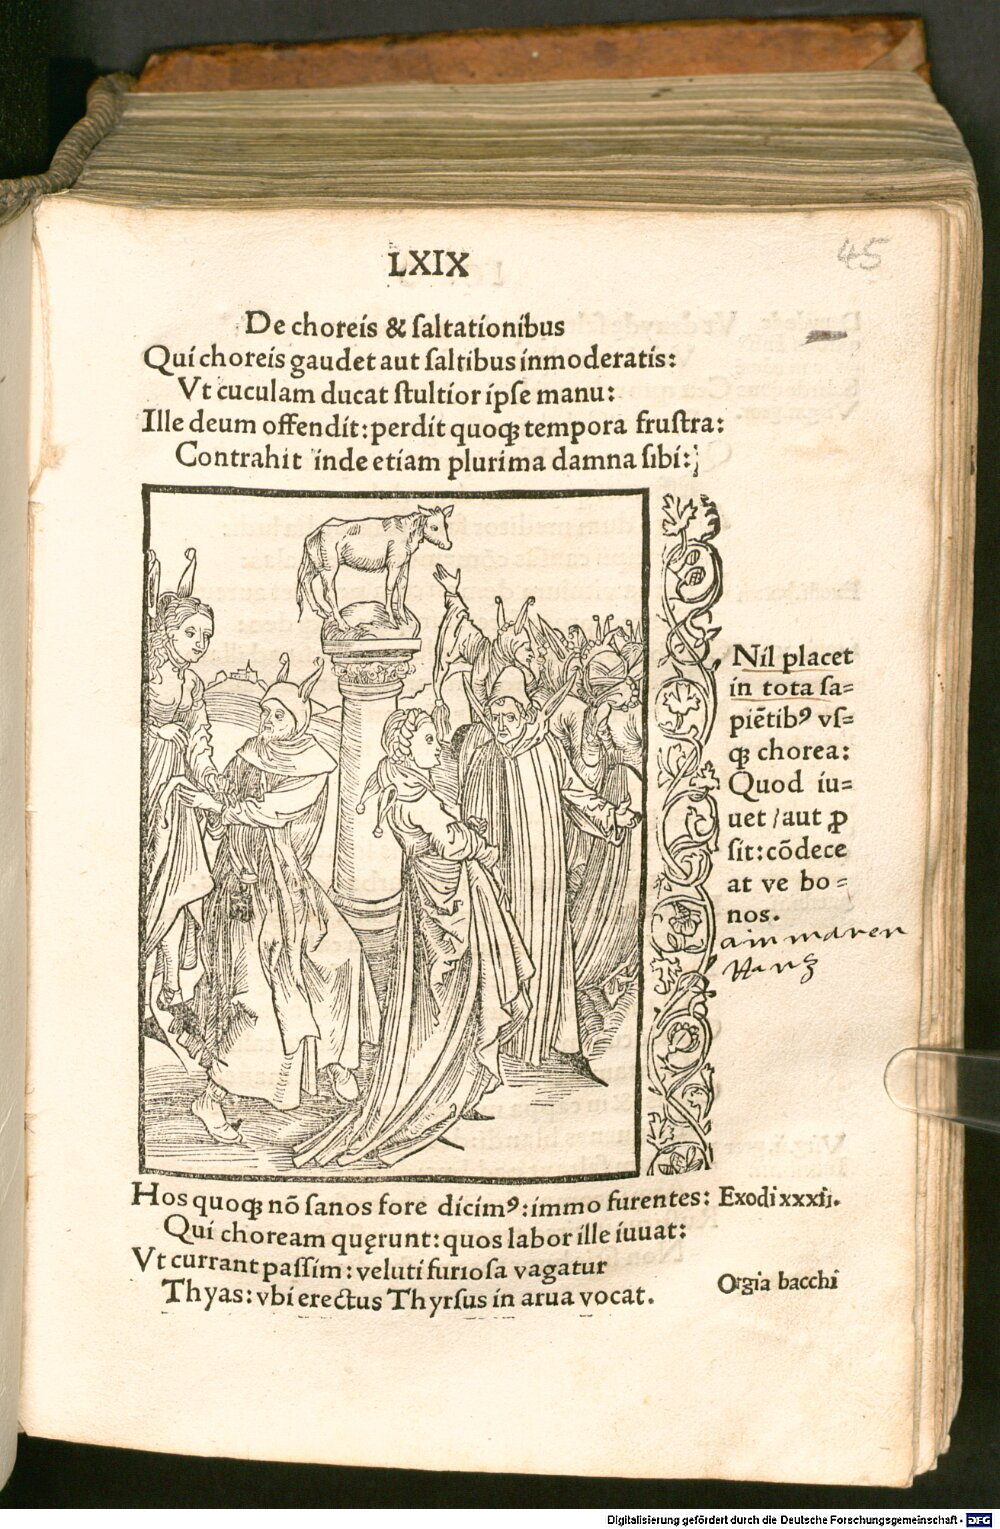 LXIX
45
De choreis & saltationibus
Qui choreis gaudet aut saltibus inmoderatis:
Vt cuculam ducat stultior ipse manu:
Ille deum offendit: perdit quoqꝫ tempora frustra:
Contrahit inde etiam plurima damna sibi:
Nil placet
in tota sa=
piētibꝰ vs=
qꝫ chorea:
Quod iu=
uet / aut ꝓ
sit: cōdece
at ve bo=
nos.
Hos quoqꝫ nō sanos fore dicimꝰ: immo furentes:
Exodi xxxii.
Qui choream quęrunt: quos labor ille iuuat:
Vt currant passim: veluti furiosa vagatur
Thyas: vbi erectus Thyrsus in arua vocat.
Orgia bacchi
Digitalisierung gefördert durch die Deutsche Forschungsgemeinschaft - DFG